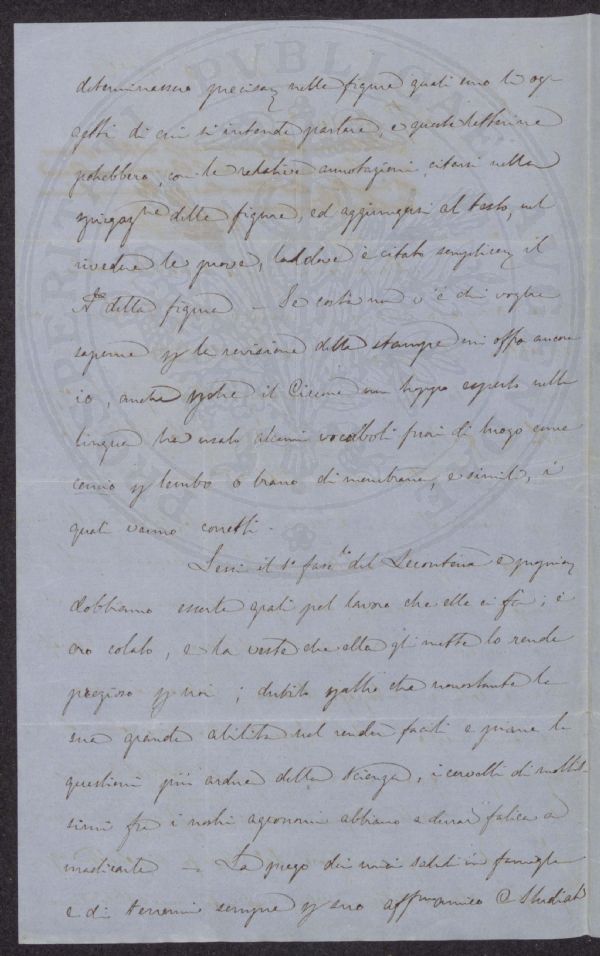 determinassero precisam nella figura quali sono li og-
getti di cui si intende parlare, e queste letterine
potrebbero, con le relative annotazioni, citarsi nella
spiegazne delle figure, ed aggiungersi al testo, nel
rivedere le prove, laddove è citato semplicem il
No della figura — Se costà non v'è chi voglia
saperne p la revisione della stampa mi offro ancora
io, anche pche il Ciccone non troppo esperto nella
lingua ha usato alcuni vocaboli fuori di luogo come
cencio p lembo o brano di membrana, e simili, i
quali vanno corretti.
Lessi il 1° fasclo del e
dobbiamo esserle grati pel lavoro che ella ci fa; è
oro colato, e la veste che ella gli mette lo rende
prezioso p noi; dubito paltro che nonostante la
sua grande abilità nel render facili e piane le
questioni più ardue della scienza, i cervelli di moltis-
simi fra i nostri agronomi abbiano a durar fatica a
masticarle — La prego dei miei saluti in famiglia
e di tenermi sempre p suo affmo amico C Studiati
PERITI PVBLICAE